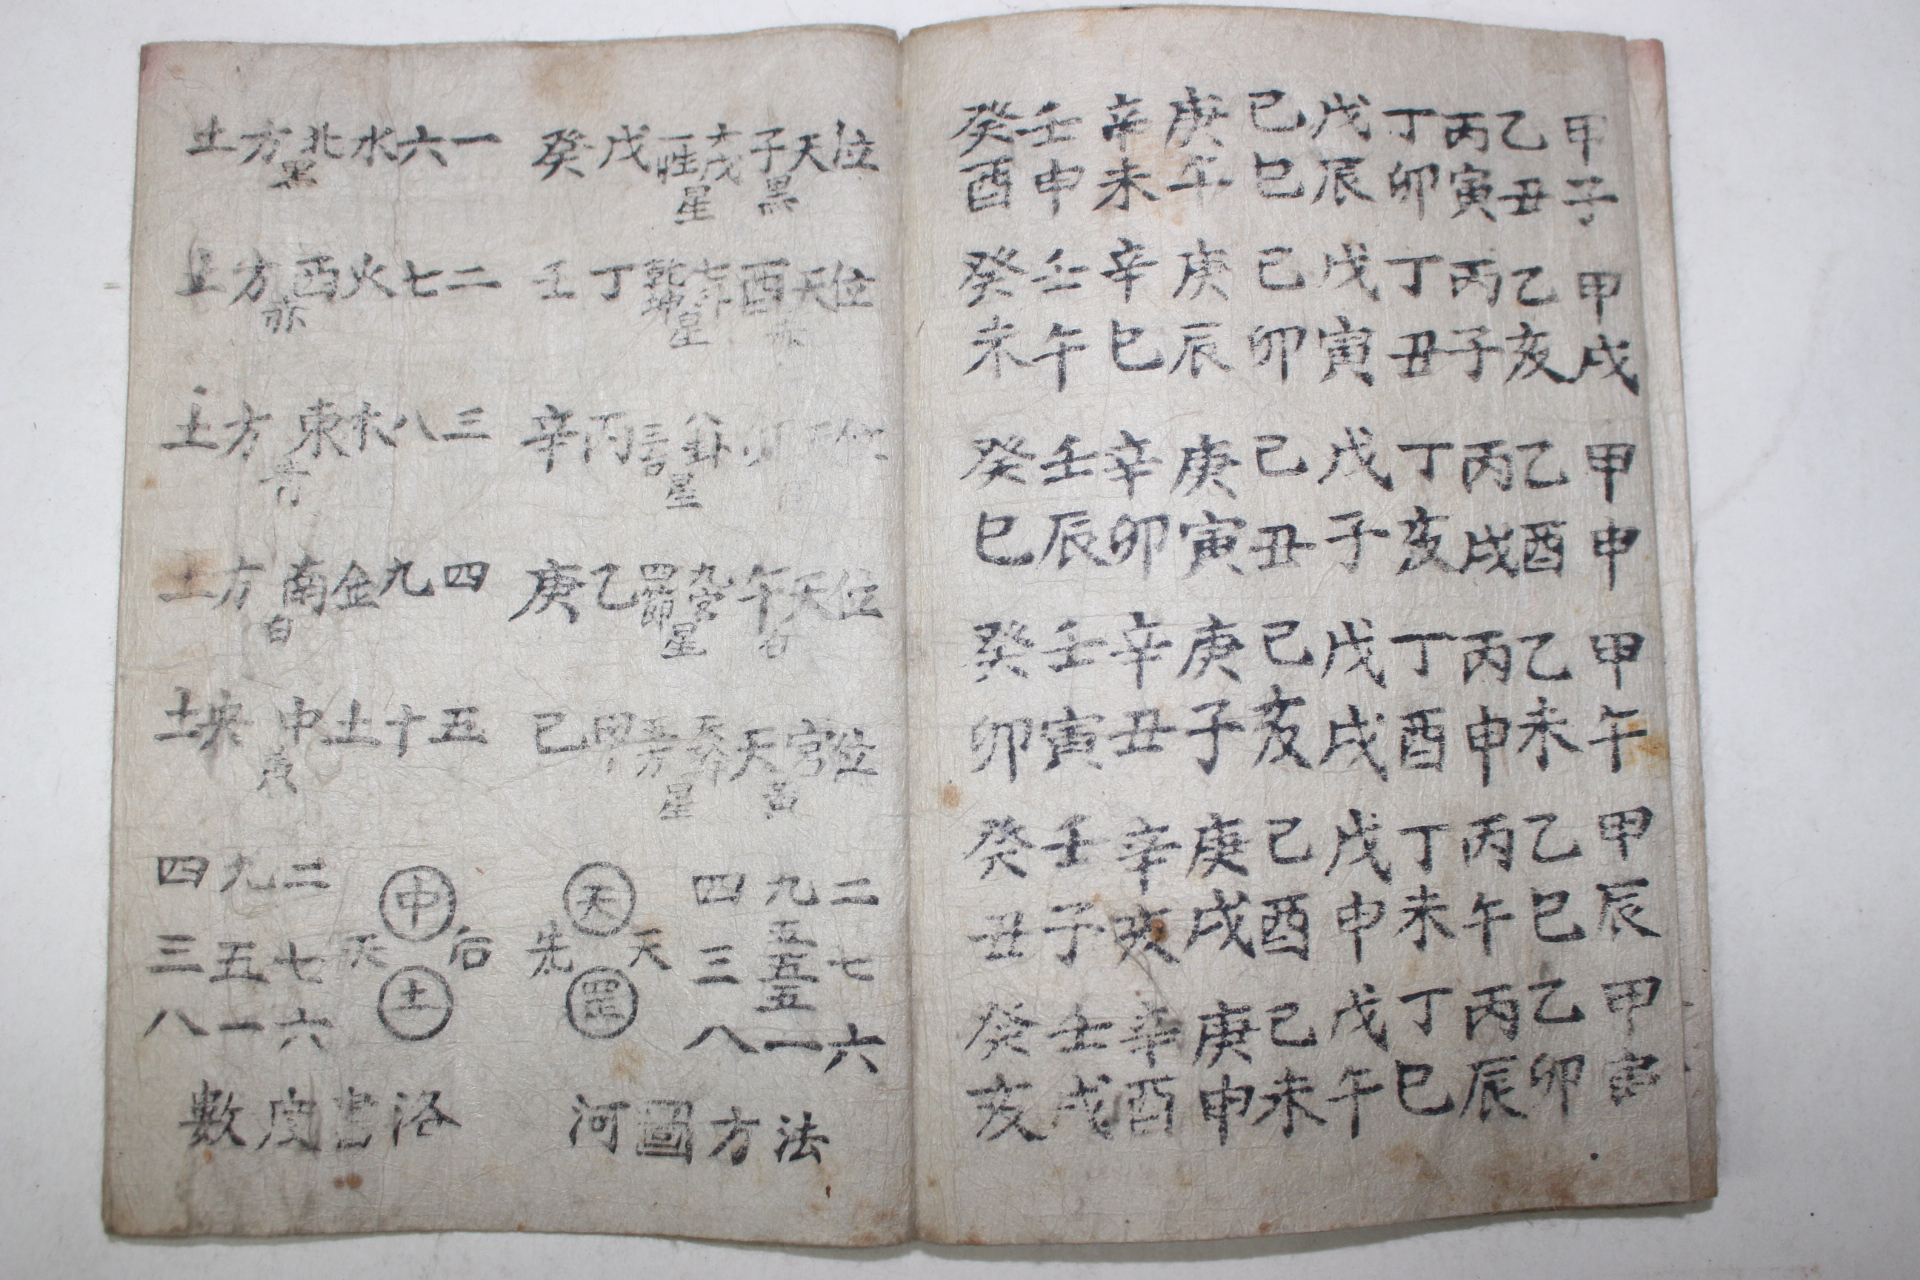 甲子 乙丑 丙寅 丁卯 戊辰 己巳 庚午 辛未 壬申 癸酉
甲戌 乙亥 丙子 丁丑 戊寅 己卯 庚辰 辛巳 壬午 癸未
甲申 乙酉 丙戌 丁亥 戊子 己丑 庚寅 辛卯 壬辰 癸巳
甲午 乙未 丙申 丁酉 戊戌 己亥 庚子 辛丑 壬寅 癸卯
甲辰 乙巳 丙午 丁未 戊申 己酉 庚戌 辛亥 壬子 癸丑
甲寅 乙卯 丙辰 丁巳 戊午 己未 庚申 辛酉 壬戌 癸亥
位天子 黑 六戊 星 戊癸
一六水北方土
黑
位天酉 赤 乾坤 星 丁壬
二七火西方土
赤
卦 星 丙辛
三八木東方土
青
位天午 白 九宮 四 星 乙庚
四九金南方土
白
位宮天 黃 星 甲己
五十土中央土
黃
二九四
七五五五三
六一八
天罡
先天
中土
后天
二九四
七五三
六一八
河圖方法
洛書度數